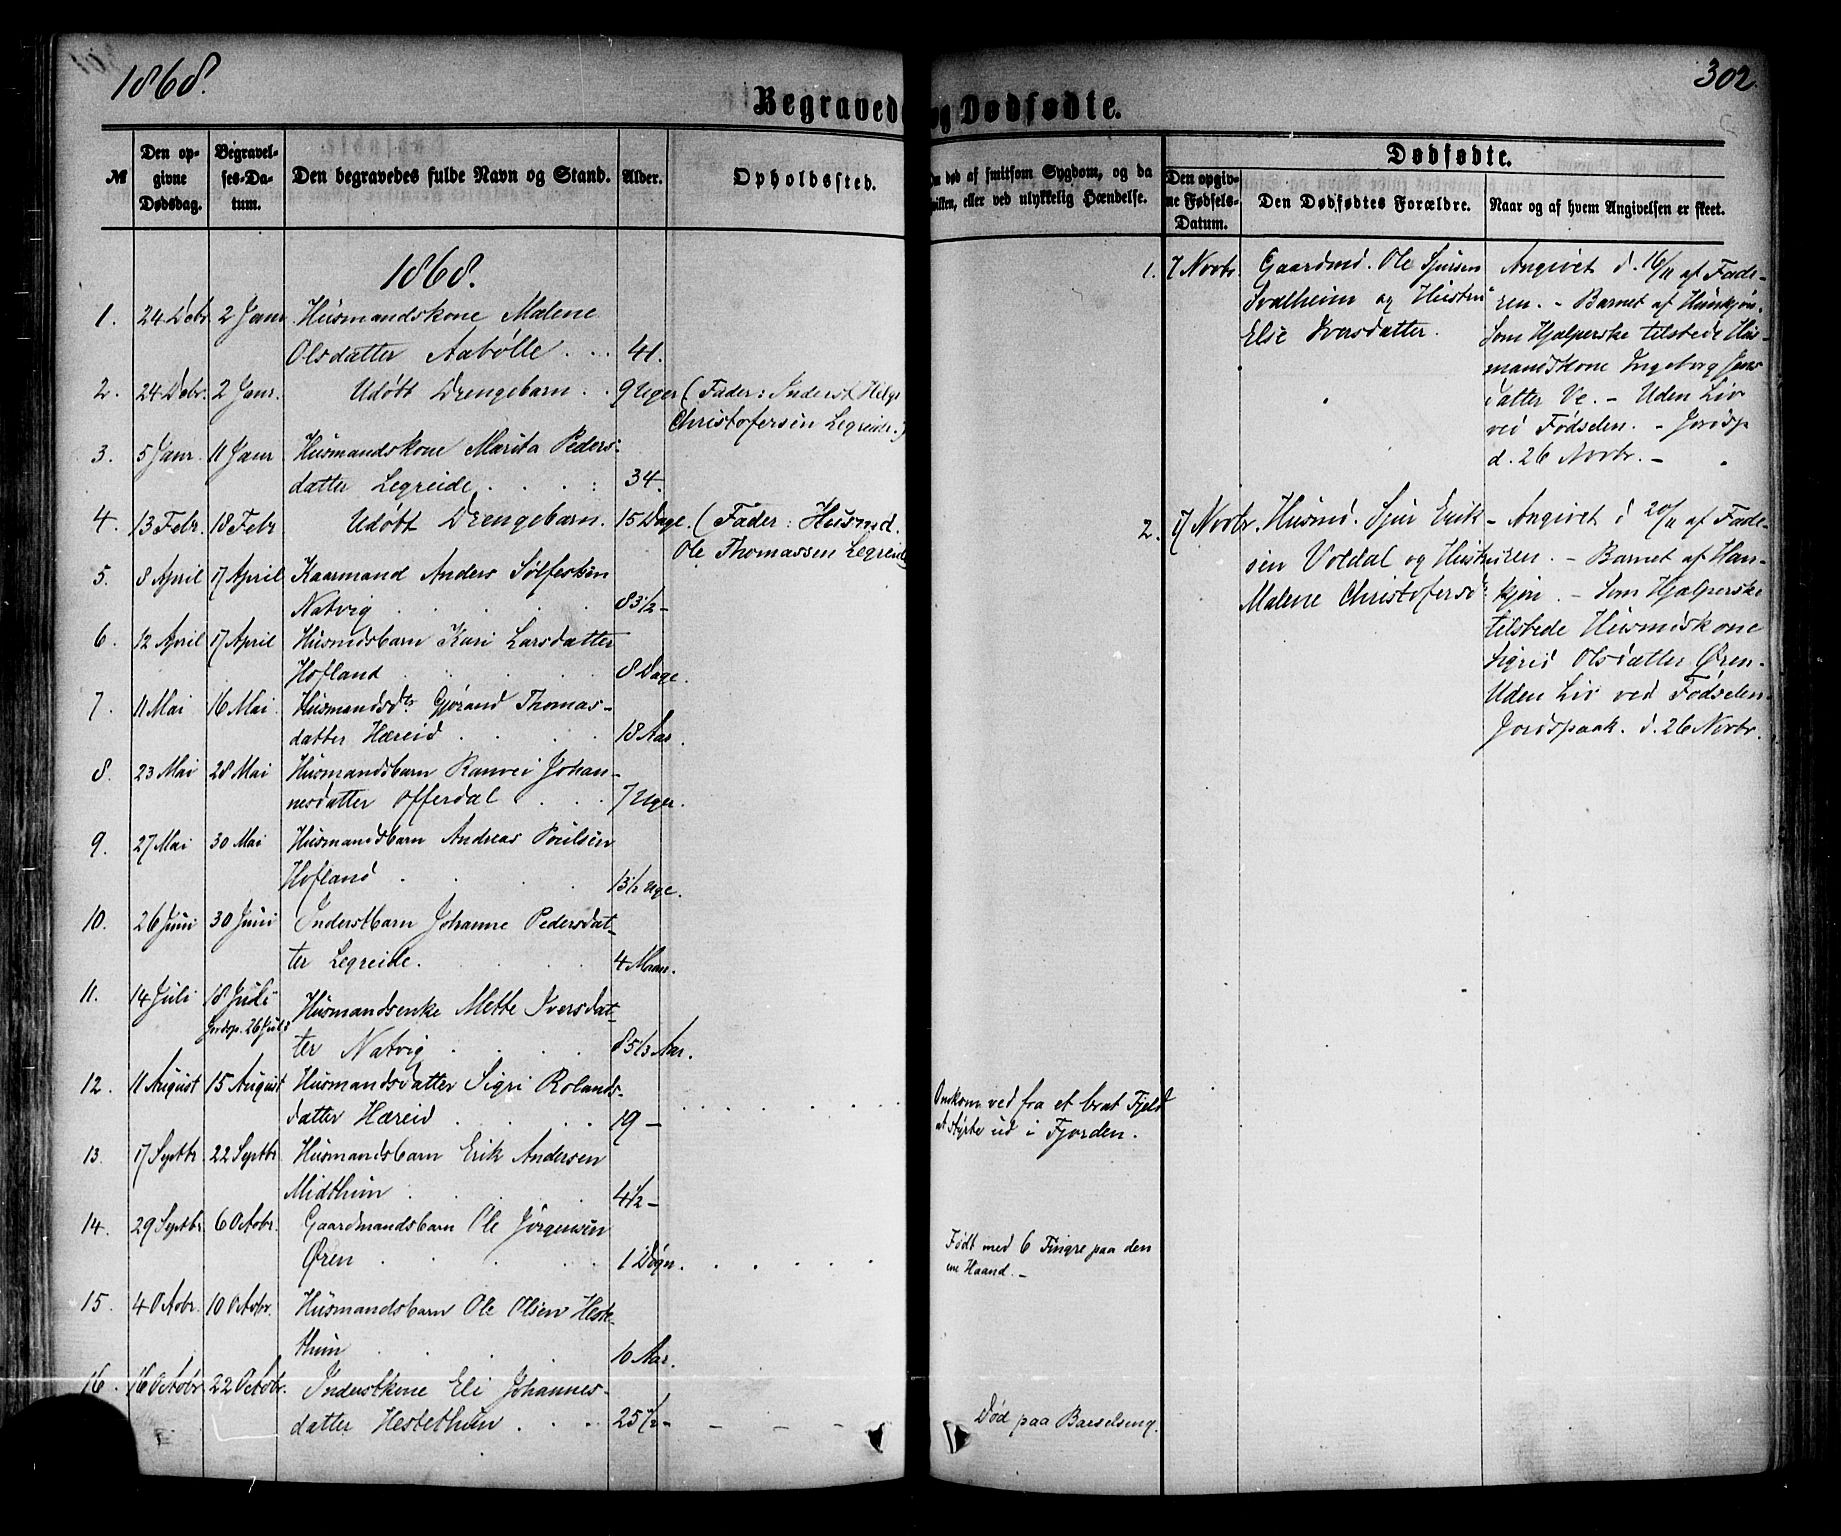 1868.
302
Begravede og Dødfødte.
№
Den op-
givne
Dødsdag.
Begravel-
ses-Da-
tum.
Den begravedes fulde Navn og Stand.
Alder.
Opholdssted.
død af smitsom Sygdom, og da
hvilken, eller ved ulykkelig Hændelse.
Dødfødte.
Den opgiv-
ne Fødsels-
Datum.
Den Dødfødtes Forældre.
Naar og af hvem Angivelsen er skeet.
1868.
1. 24 Debr 2 Janr Husmandskone Malene
Olsdatter Aabølle . . . 41.
2. 24 Debr. 2 Janr. Udøbt Drengebarn . . 9 Uger (Fader: Inderst Helge
Christofersen Legreide.)
3. 5 Janr. 11 Janr Husmandskone Marita Peders-
datter Legreide . . . . 34.
4. 13 Febr. 18 Febr Udøbt Drengebarn. 15 Dage. (Fader: Husmd.
Ole Thomassen Legreide)
5. 8 April 17 April Kaarmand Anders Sølfestsen
Natvig . . . . 83½ -
6. 12 April 17 April Husmdsbarn Kari Larsdatter
Hofland . . . . 8 Dage.
7. 11 Mai 16 Mai Husmandsdr Gjørand Thomas-
datter Hæreid . . . . 18 Aar.
8. 23 Mai 28 Mai Husmandsbarn Ranvei Johan-
nesdatter Offerdal . . . 7 Uger.
9. 27 Mai 30 Mai Husmandsbarn Andreas Poulsen
Hofland . . . . 13½ Uge.
10. 26 Juni 30 Juni Inderstbarn Johanne Pedersdat-
ter Legreide. . . . 4 Maan.
11. 14 Juli 18 Juli
Jordsp. 26 Juli Husmandsenke Mette Iversdat-
ter Natvig . . . . 85⅓ Aar.
12. 11 August 15 August Husmandsdatter Sigri Rolands-
datter Hæreid . . . . 19 - . . . . . .
Omkom ved fra et brat Fjeld
at styrte ud i Fjorden.
13. 17 Septbr 22 Septbr. Husmandsbarn Erik Andersen
Midthun . . . . 4½ -
14. 29 Septbr. 6 Octobr. Gaardmandsbarn Ole Jørgensen
Øren . . . . 1 Døgn. . . . .
Født med 6 Fingre paa den
ene Haand. -
15. 4 Octobr. 10 Octobr. Husmandsbarn Ole Olsen Heste-
thun . . . . 10 Aar.
16. 16 Octobr 22 Octobr. Inderstkone Eli Johannes-
datter Hestethun . . . 25½ - - - - -
Død paa Barselseng.
1. 7 Novbr. Gaardmd. Ole Sjursen
Svalheim og Hustru
Else Iversdatter.
Angivet d. 16/11 af Fade-
ren. - Barnet af Hunkjøn.
Som Hjælperske tilstede Hus-
mandskone Ingeborg Jens
datter Ve. - Uden Liv
ved Fødselen. - Jordsp
d. 26 Novbr. -
2. 17 Novbr. Husmd. Sjur Erik-
sen Voldal og Hustru
Malene Christofersd.
Angivet d 20/11 af Fade-
ren. - Barnet af Han-
kjøn. - Som Hjælperske
tilstede Husmdskone
Sigrid Olsdatter Øren.
Uden Liv ved Fødselen.
Jordspaak. d. 26 Novbr.